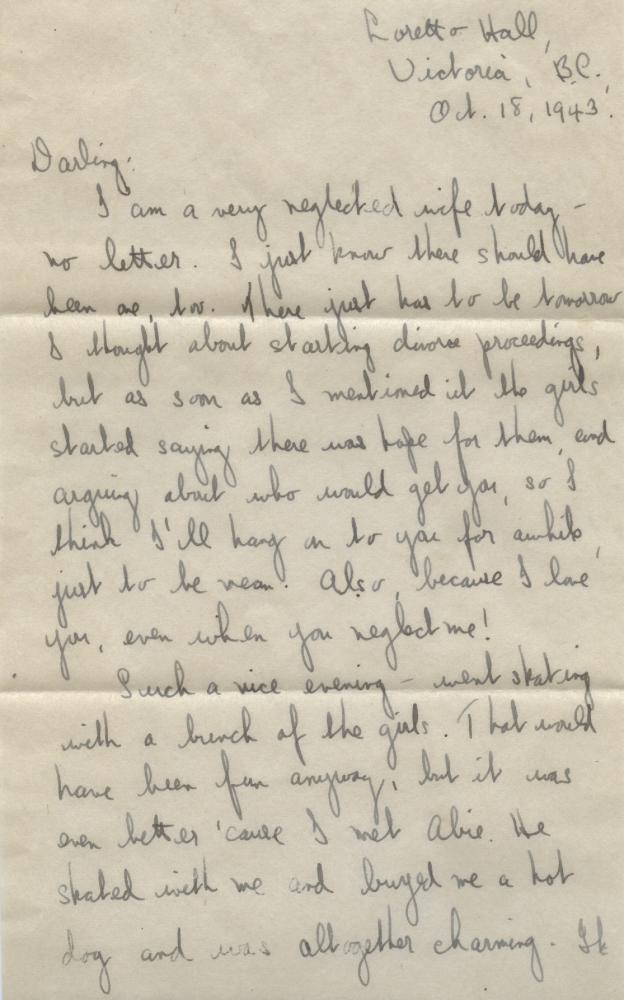 Loretto Hall,
Victoria, B.C.,
Oct. 18, 1943.
Darling:
I am a very neglected wife today –
no letter. I just know there should have
been one, too. There just has to be tomorrow
I thought about starting divorce proceedings,
but as soon as I mentioned it the girls
started saying there was hope for them, and
arguing about who would get you, so I
think I'll hang on to you for awhile,
just to be mean. Also, because I love
you, even when you neglect me!
Such a nice evening – went skating
with a bunch of the girls. That would
have been fun anyway, but it was
even better 'cause I met Abie. He
skated with me and buyed me a hot
dog and was altogether charming.